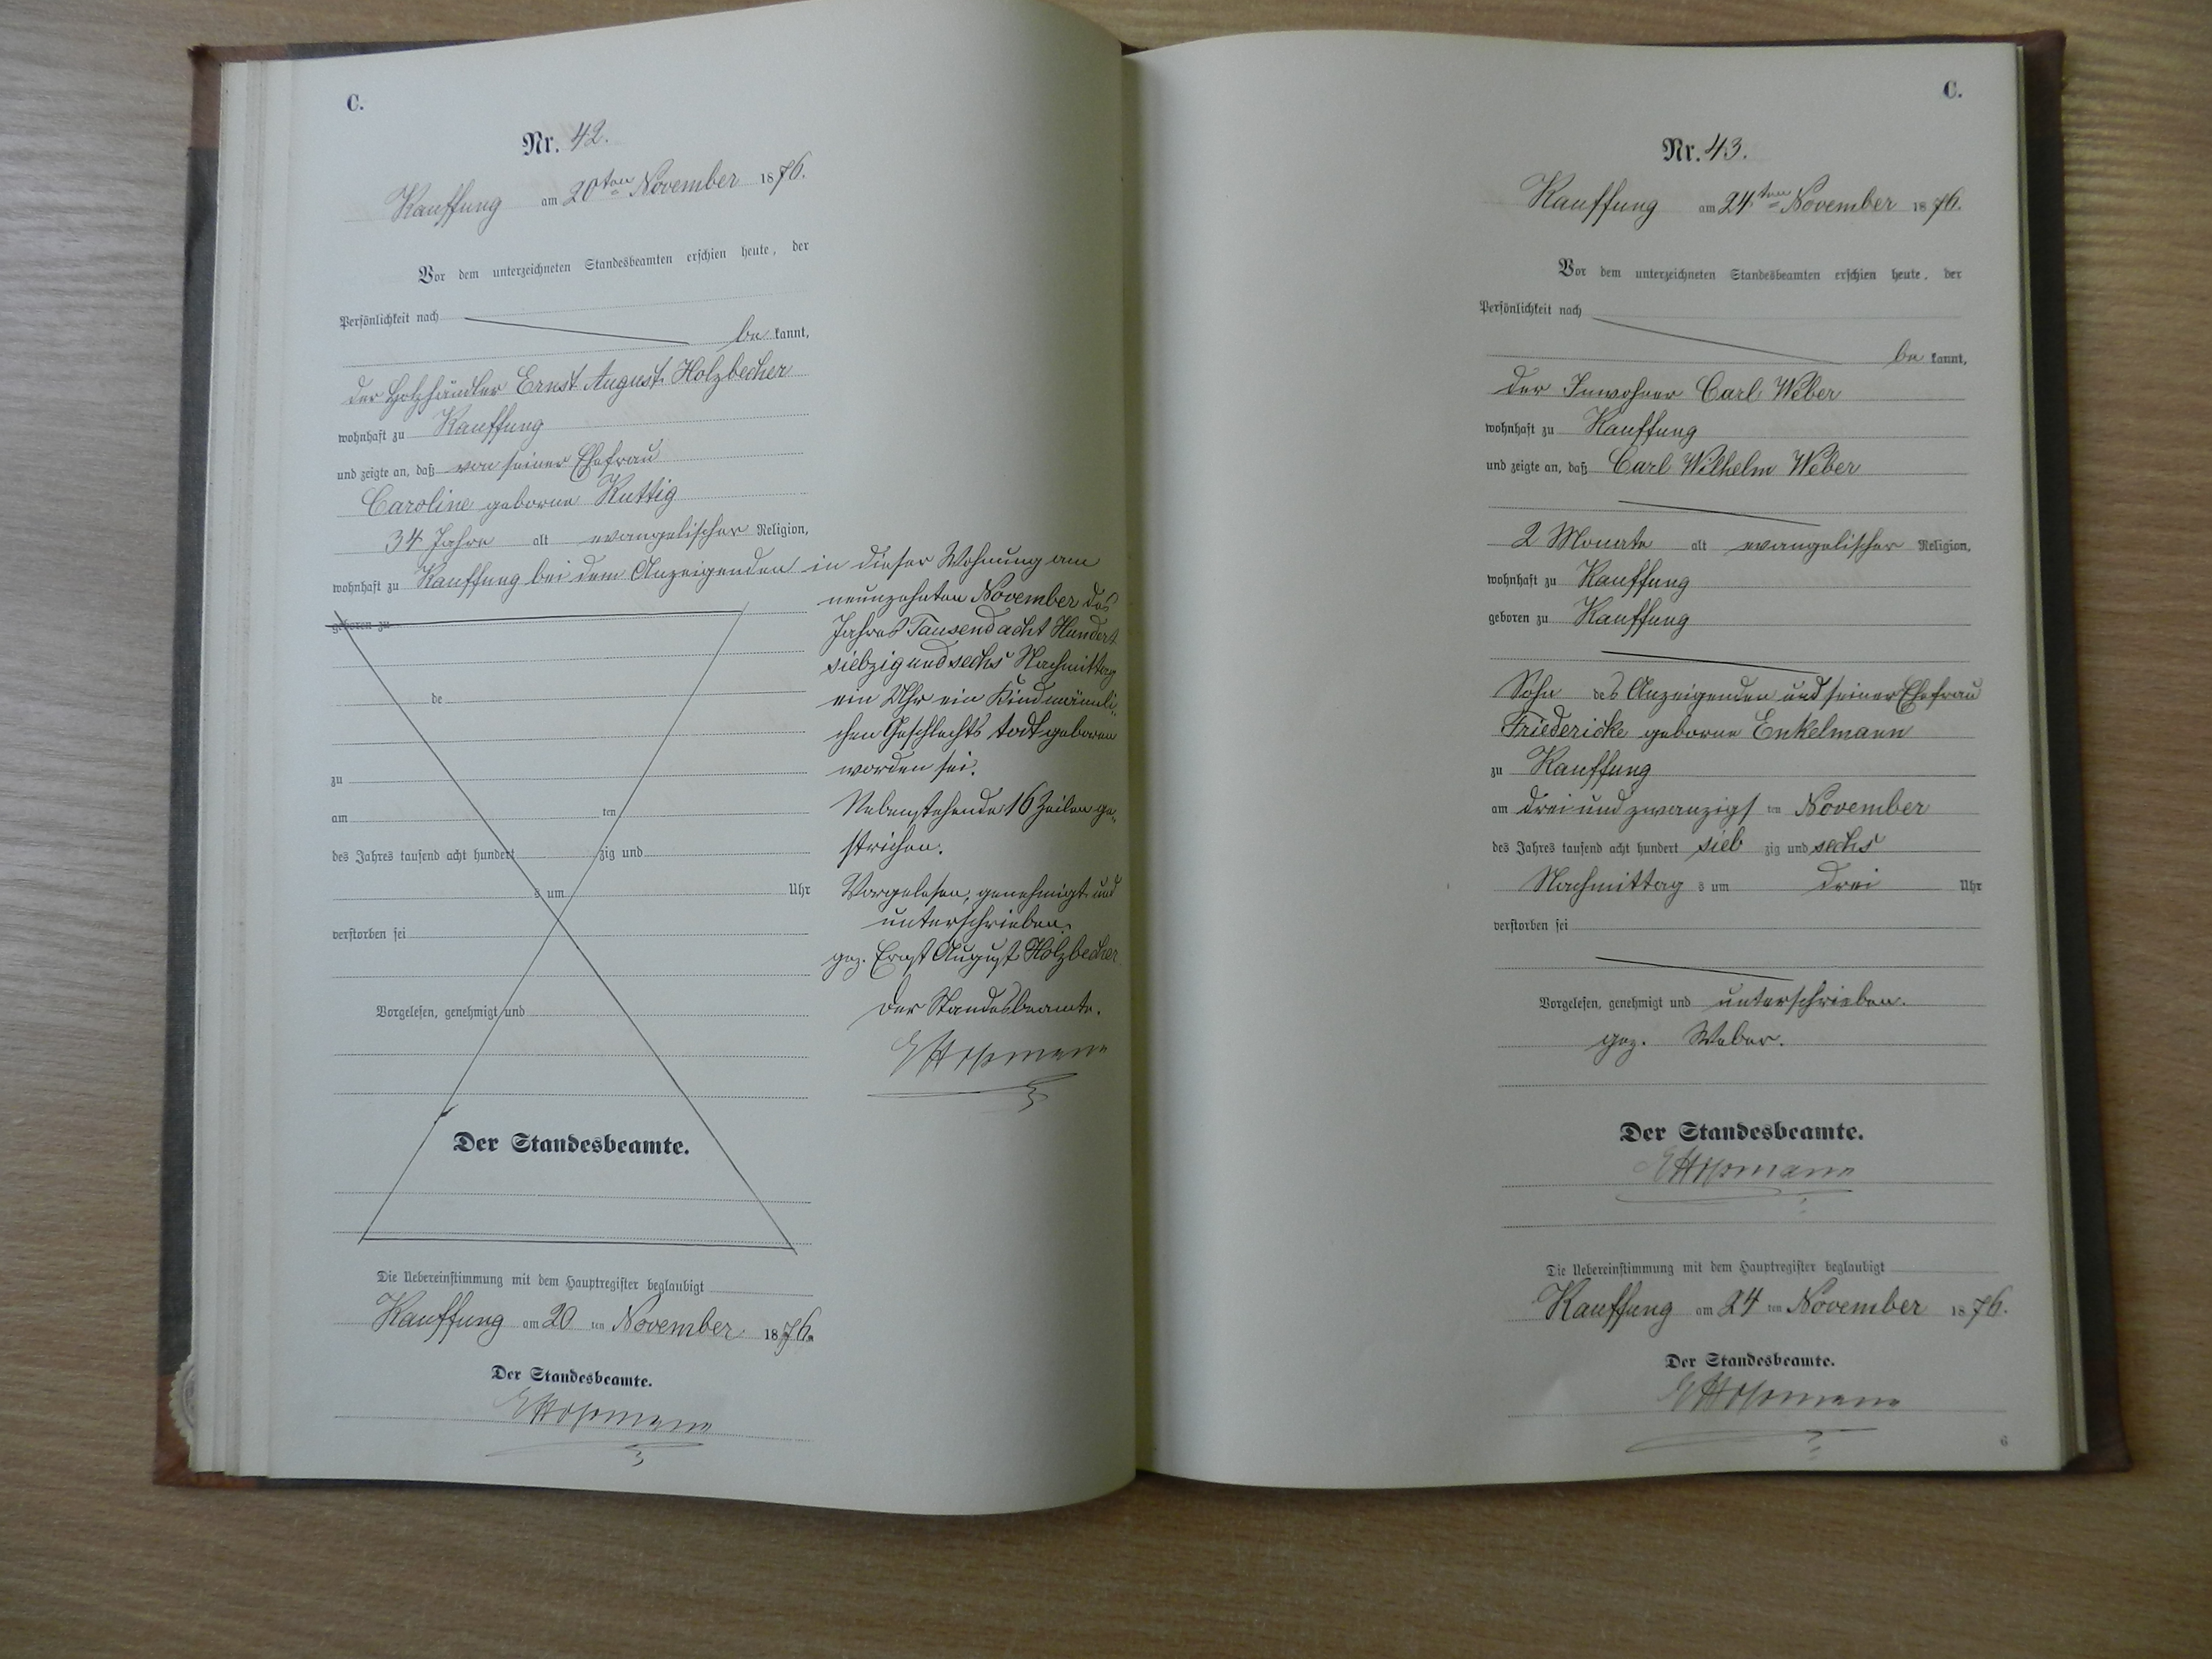 C.
Nr. 42.
Kauffung am 20ten November 1876.
Vor dem unterzeichneten Standesbeamten erschien heute, der
Persönlichkeit nach
be kannt,
der Holzhändler Ernst August Holzbecher
wohnhaft zu Kauffung
und zeigte an, daß von seiner Ehefrau
Caroline geborne Ruttig
34 Jahre alt evangelischer Religion,
wohnhaft zu Kauffung bei dem Anzeigenden in dieser Wohnung am
geboren zu
neunzehnten November des
Jahres Tausend acht Hundert
siebzig und sechs Nachmittag
ein Uhr ein Kind männli-
chen Geschlechts todt geboren
worden sei.
Nebenstehende 16 Zeilen ge-
strichen.
Vorgelesen, genehmigt und
unterschrieben.
gez. Ernst August Holzbecher
Der Standesbeamte.
de
zu
am ten
des Jahres tausend acht hundert zig und
s um Uhr
verstorben sei
Vorgelesen, genehmigt und
Der Standesbeamte.
Die Uebereinstimmung mit dem Hauptregister beglaubigt
Kauffung am 20 ten November 1876.
Der Standesbeamte.
C.
Nr. 43.
Kauffung am 24ten November 1876.
Vor dem unterzeichneten Standesbeamten erschien heute, der
Persönlichkeit nach
be kannt,
der Inwohner Carl Weber
wohnhaft zu Kauffung
und zeigte an, daß Carl Wilhelm Weber
2 Monate alt evangelischer Religion,
wohnhaft zu Kauffung
geboren zu Kauffung
Sohn des Anzeigenden und seiner Ehefrau
Friedericke geborne Enkelmann
zu Kauffung
am drei und zwanzigs ten November
des Jahres tausend acht hundert sieb zig und sechs
Nachmittag s um drei Uhr
verstorben sei
Vorgelesen, genehmigt und unterschrieben.
gez. Weber.
Der Standesbeamte.
Die Uebereinstimmung mit dem Hauptregister beglaubigt
Kauffung am 24 ten November 1876.
Der Standesbeamte.
6